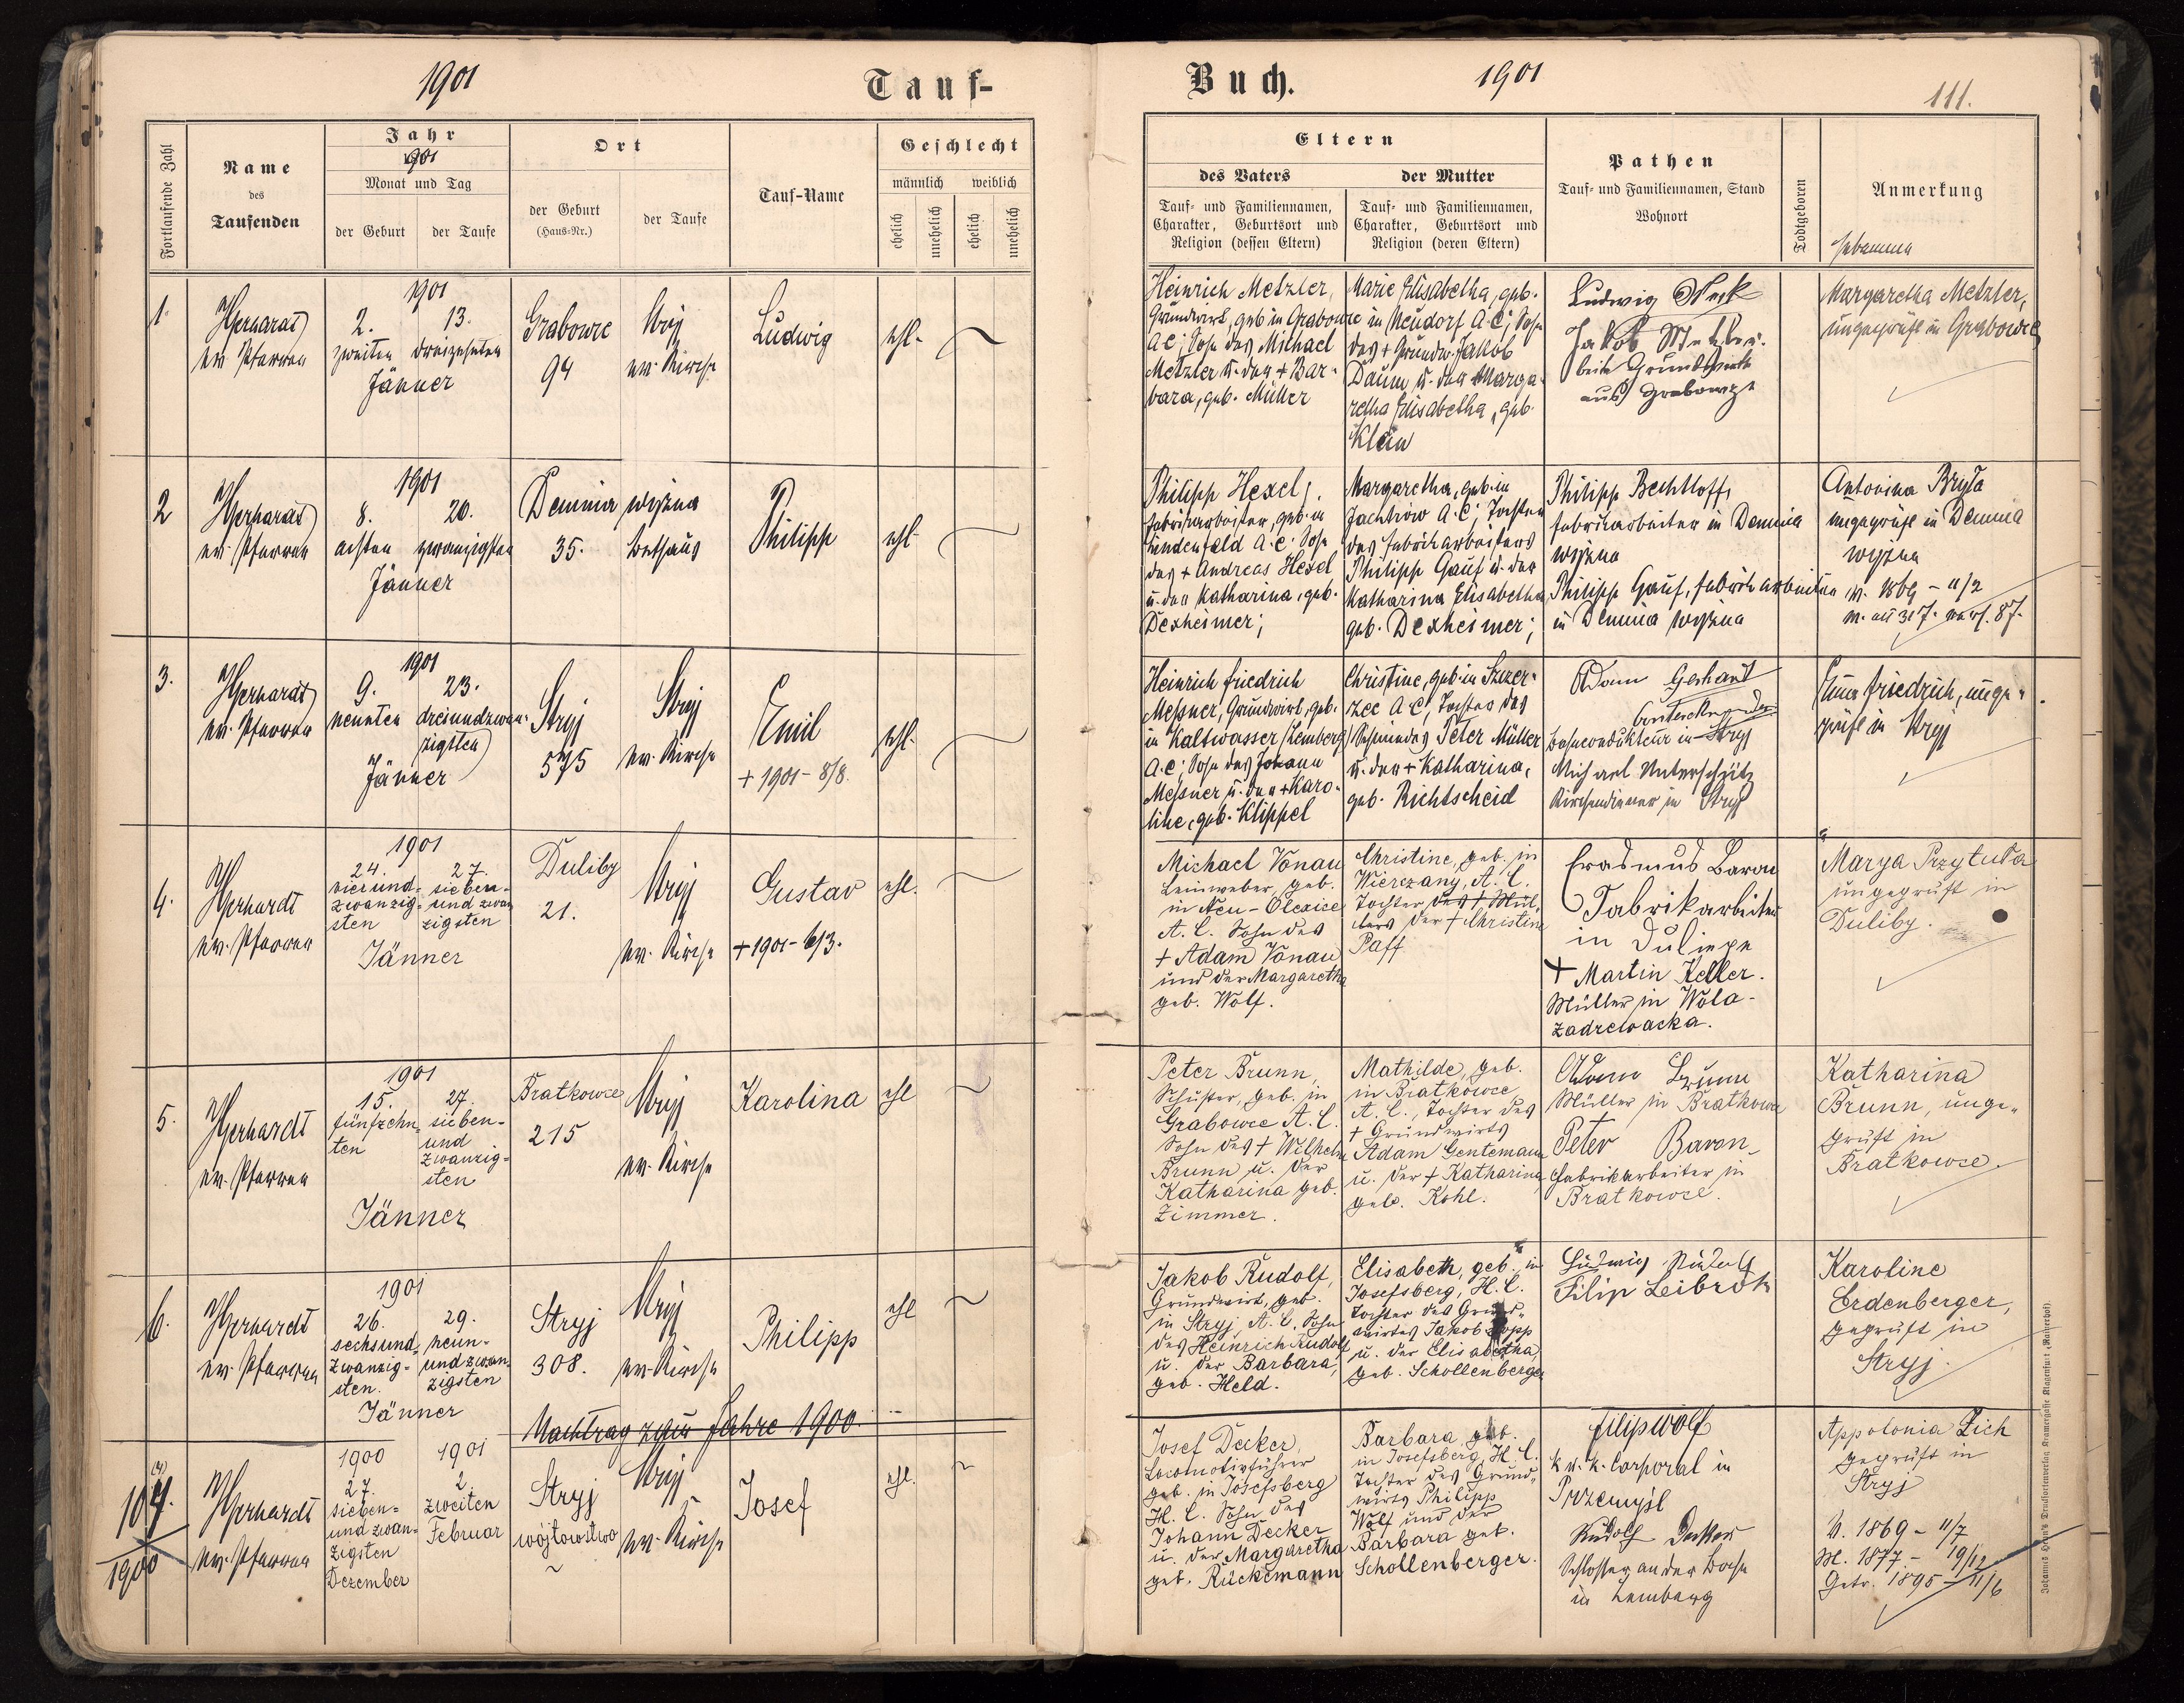 1901
Tauf-
Fortlaufende Zahl
Name
des
Taufenden
Jahr
1901
Monat und Tag
der Geburt
der Taufe
Ort
der Geburt
(Haus-Nr.)
der Taufe
Tauf-Name
Geschlecht
männlich
weiblich
ehelich
unehelich
ehelich
unehelich
1.
Gerhardt
ev. Pfarrer
1901
2.
13.
zweiten
dreizehnten
Jänner
Grabowce
94
Stryj
ev. Kirche
Ludwig
ehl.
2
Gerhardt
ev. Pfarrer
1901
8.
20.
achten
zwanzigsten
Jänner
Demnia wyżna
35.
Bethaus
Philipp
ehl.
3.
Gerhardt
ev. Pfarrer
1901
9.
23.
neunten
dreiundzwan-
zigsten
Jänner
Stryj
575
Stryj
ev. Kirche
Emil
+ 1901 - 8/8.
ehl.
4.
Gerhardt
ev. Pfarrer
1901
24.
27.
vierund-
zwanzig-
sten
sieben-
und zwan
zigsten
Jänner
Duliby
21.
Stryj
ev. Kirche
Gustav
+ 1901 - 6/3.
ehl.
5.
Gerhardt
ev. Pfarrer
1901
15.
27.
fünfzehn-
ten
sieben-
und
zwanzig-
sten
Jänner
Bratkowce
215
Stryj
ev. Kirche
Karolina
ehl
6.
Gerhardt
ev. Pfarrer
1901
26.
29.
sechsund-
zwanzig-
sten.
neun-
und zwan-
zigsten
Jänner
Stryj
308.
Stryj
ev. Kirche
Philipp
ehl
Nachtrag zum Jahre 1900.
1900
Gerhardt
ev. Pfarrer
1900
1901
27.
2
sieben-
und zwan-
zigsten
Dezember
zweiten
Februar
Stryj
wójtowstwo
Stryj
ev. Kirche
Josef
ehl.
Buch.
1901
111.
Eltern
des Vaters
der Mutter
Tauf- und Familiennamen,
Charakter, Geburtsort und
Religion (dessen Eltern)
Tauf- und Familiennamen,
Charakter, Geburtsort und
Religion (deren Eltern)
Pathen
Tauf- und Familiennamen, Stand
Wohnort
Todtgeboren
Anmerkung
Hebamme
Heinrich Metzler,
Grundwirt, geb. in Grabowce
A C; Sohn des Michael
Metzler u. der + Bar-
bara, geb. Müller
Marie Elisabetha, geb.
in Neudorf A. C; Tochter
des + Grundw. Jakob
Daum u. der Marga-
retha Elisabetha, geb.
Klein
Ludwig
Jakob Metzler
beide Grundwirte
aus Grabowce
Margaretha Metzler,
ungeprüft in Grabowce
Philipp Hexel,
Fabriksarbeiter, geb. in
Lindenfeld A. C. Sohn
des + Andreas Hexel
u. der Katharina, geb.
Dexheimer;
Margaretha, geb. in
A. C; Tochter
des Fabriksarbeiters
Philipp Gauf u. der
Katharina Elisabetha
geb. Dexheimer;
Philipp Bechtloff,
Fabriksarbeiter in Demnia
wyżna
Philipp Gauf, Fabriksarbeiter
in Demnia wyżna
Antonina Bryła
ungeprüft in Demnia
wyżna
Heinrich Friedrich
Messner, Grundwirt, geb.
in Kaltwasser (Lemberg)
A. C; Sohn des Johann
Messner u. der + Karo-
line, geb. Klippel
Christine, geb. in Szczer-
zec A. C; Tochter des
Schmiedes Peter Müller
u. der + Katharina,
geb. Richtscheid
Adam Gerhart
Bahnkondukteur in Stryj
Michael Unterschütz
Kirchendiener in Stryj
Friedrich, unge-
prüft in Stryj
Michael Vonau
Leinweber, geb.
in Neu-Olexice
A. C. Sohn des
+ Adam Vonau
und der Margaretha
geb. Wolf.
Christine, geb. in
Wierczany, A. C.
Tochter des + Mül-
lers der + Christine
Paff
Erasmus Baron
Fabrikarbeiter
in
+ Martin Keller.
Müller in Wola-
Zadrewacka.
Marya Przytuła
ungeprüft in
Duliby.
Peter Brunn,
Schuster, geb. in
Grabowce A. C.
Sohn des + Wilhelm
Brunn u. der
Katharina geb.
Zimmer.
Mathilde, geb.
in Bratkowce
A. C., Tochter des
+ Grundwirts
Adam Gentemann
u. der + Katharina
geb. Kohl.
Adam Brunn
Müller in Bratkowce
Peter Baron
Fabrikarbeiter in
Bratkowce.
Katharina
Brunn, unge-
prüft in
Bratkowce.
Jakob Rudolf,
Grundwirt, geb.
in Stryj A. C. Sohn
des Heinrich Rudolf
u. der Barbara,
geb. Held.
Elisabeth, geb. in
Josefsberg, H. C.
Tochter des Grund-
wirtes Jakob
u. der Elisabetha,
geb. Schollenberger
Ludwig Rudolf
Filip Leibrok
Karoline
Erdenberger,
geprüft in
Stryj.
Josef Decker,
Locomotivführer
geb. in Josefsberg
H. C. Sohn des
Johann Decker
u. der Margaretha
geb. Rückemann
Barbara geb.
in Josefsberg, H. C.
Tochter des Grund-
wirts Philipp
Wolf und der
Barbara geb.
Schollenberger.
Filip Wolf
k. u. k. Corporal in
Przemyśl
Rudolf Decker
Schlosser an der Bahn
in Lemberg
Appolonia Zich
geprüft in
Stryj
V. 1869 - 11/7
M. 1877 - 19/12
Getr. 1895 - 11/6